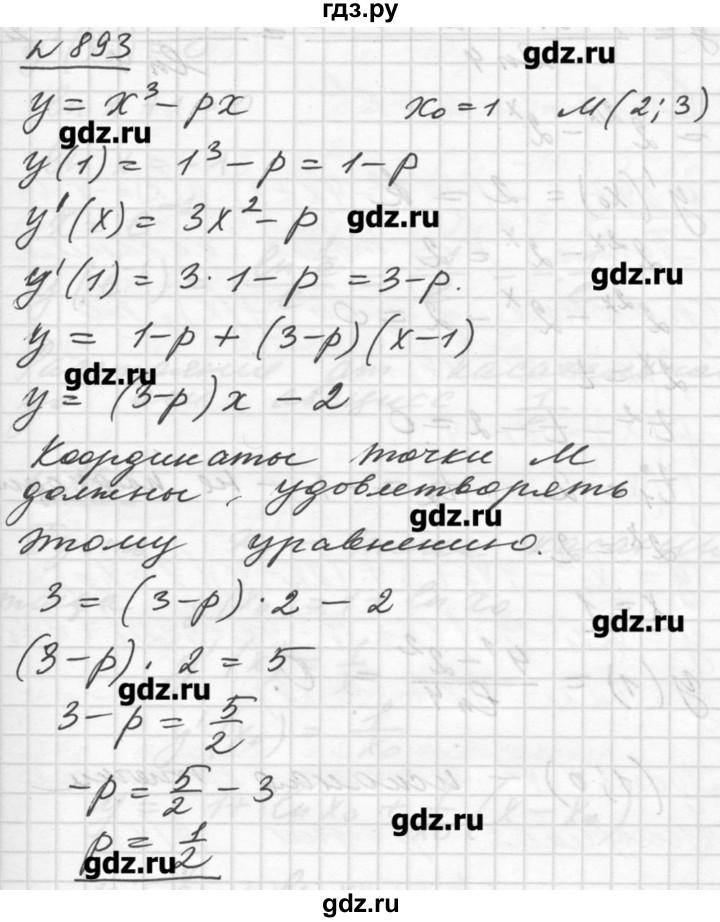 гдз.ру
№ 893
gdz.ru
y = x³ - px   x₀ = 1   M(2; 3)
gdz.ru
y(1) = 1³ - p = 1 - p
y'(x) = 3x² - p
gdz.ru
y'(1) = 3·1 - p = 3 - p.
gdz.ru
y = 1 - p + (3 - p)(x - 1)
gdz.ru
y = (3 - p)x - 2
Координаты точки М
должны удовлетворять
gdz.ru
этому уравнению.
3 = (3 - p)·2 - 2
gdz.ru
(3 - p)·2 = 5
gdz.ru
3 - p = 5/2
-p = 5/2 - 3
gdz.ru
p = 1/2
gdz.ru
gdz.ru